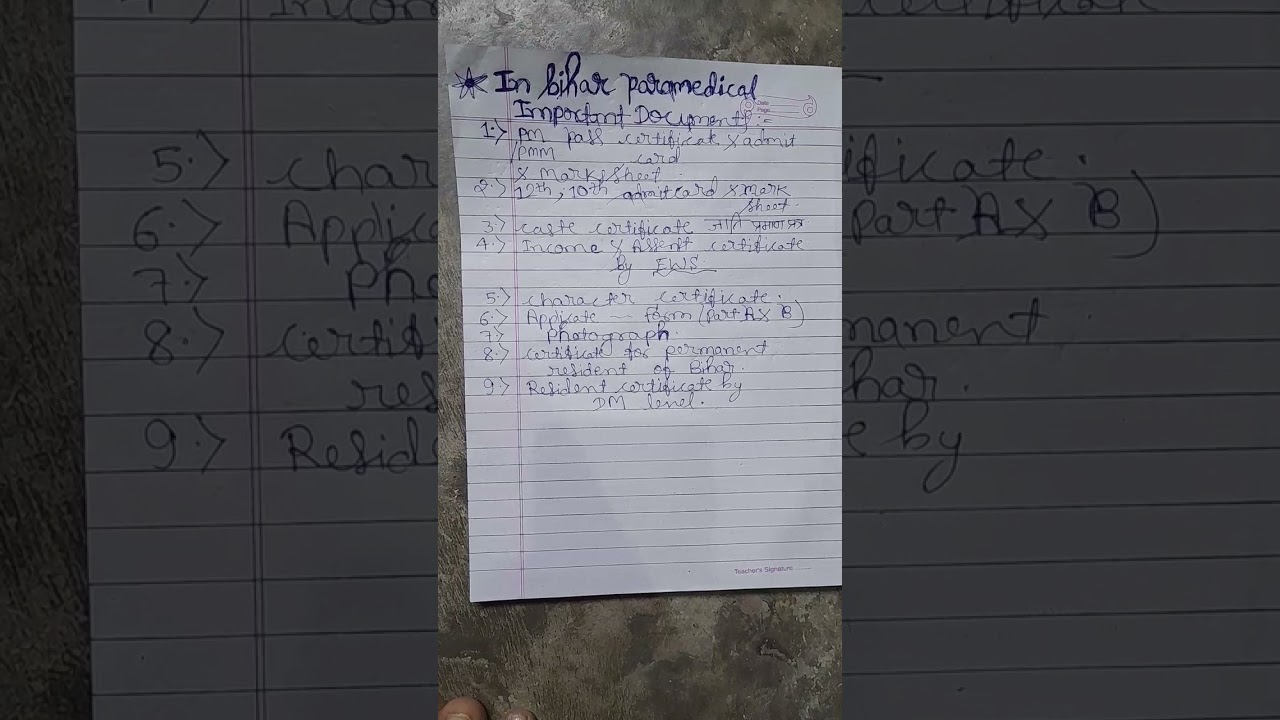 In bihar paramedical
Important Documents :-
Date
Page
1.> PM pass certificate & admit
/PMM card
& mark/sheet.
2.> 12th, 10th admit card & mark
sheet.
3.> caste certificate जाति प्रमाण पत्र
4.> Income & Assent certificate
by EWS.
5.> character certificate.
6.> Applicate — form (Part A & B)
7.> photograph.
8.> certificate for permanent
resident of Bihar.
9.> Resident certificate by
DM level.
Teacher's Signature ........
5.> char
ificate.
6.> Applica
Part A & B)
7.> Pho
8.> certifi
manent
res
har.
9.> Resid
e by